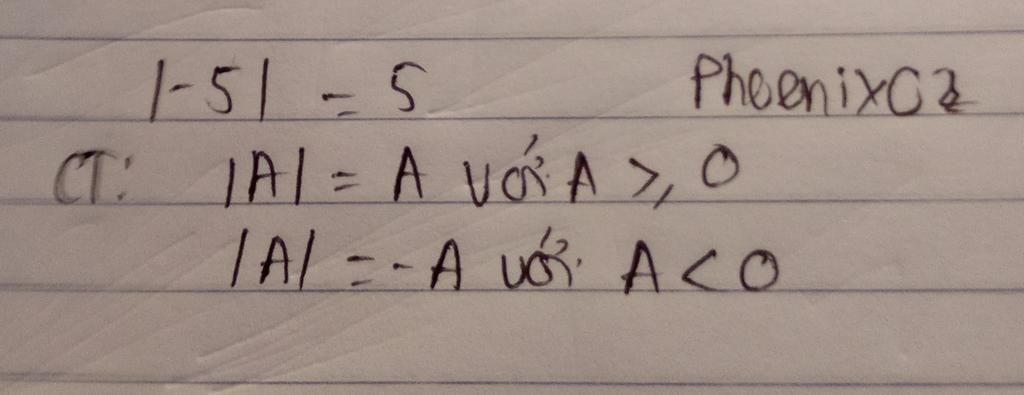 |-5| = 5 PhoenixC2
CT: |A| = A với A ≥ 0
|A| = -A với A < 0